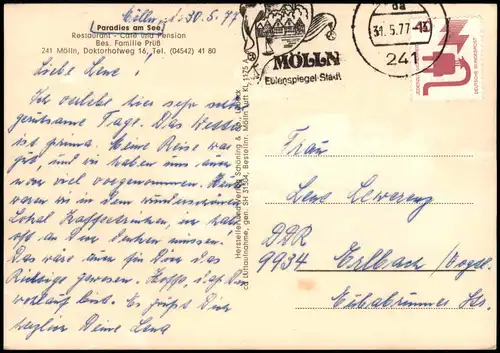 Mölln, d. 30.5.77
Paradies am See
Restaurant - Café und Pension
Bes. Familie Prüß
241 Mölln, Doktorhofweg 16, Tel. (04542) 41 80
Liebe Lene!
Ich verlebe hier sehr schöne
geruhsame Tage. Das Wetter
ist prima. Meine Reise war
gut, und wir haben uns auch
schon viel vorgenommen. Heute
waren wir in dem wunderschönen
Lokal Kaffeetrinken, ich habe
oft an Dich denken müssen.
Das wäre auch für Dich das
Richtige gewesen. Hoffe, daß Du
wohlauf bist. Es grüßt Dich
herzlich Deine
Hersteller und Verlag Schöning & Co., Lübeck
Luftaufnahme, gen. SH 31504, Bestellnr. Mölln Luft KL 1175
MÖLLN
Eulenspiegel-Stadt
da
31.5.77-13
241
DEUTSCHE BUNDESPOST
Frau
Lene
DDR
9934 Erlbach/Vogtl.
Eubabrunner Str.